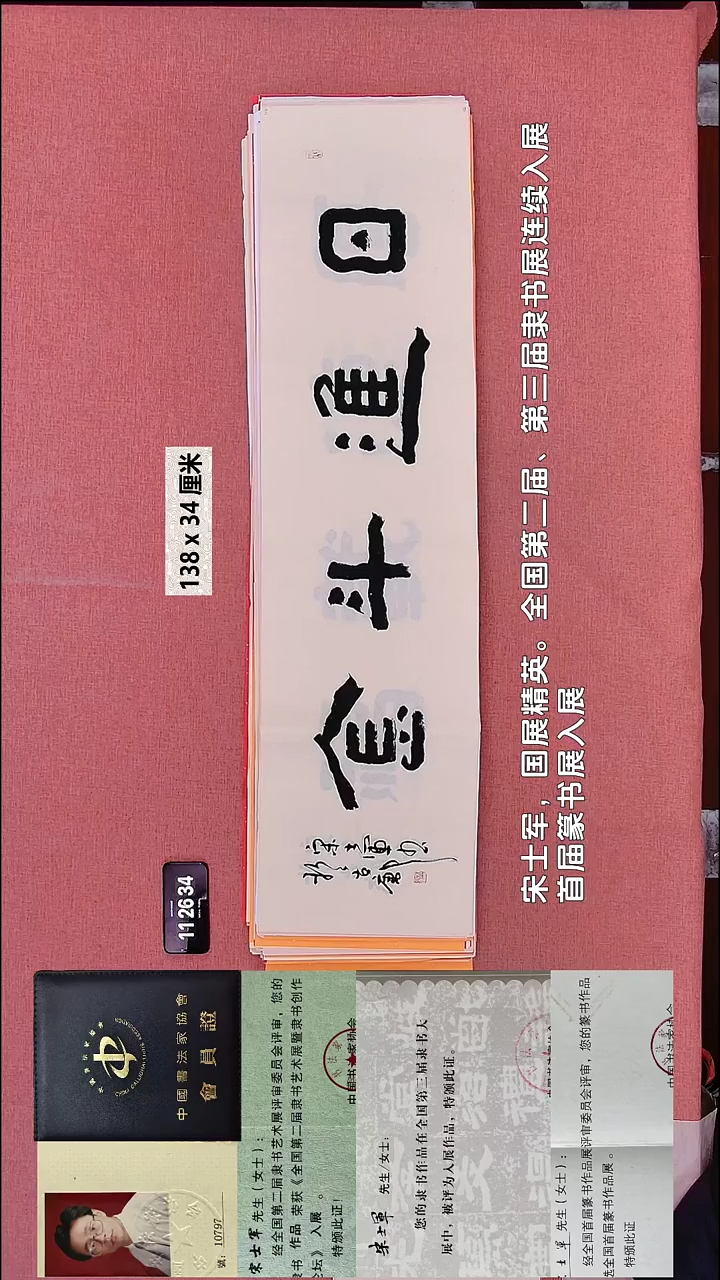 138 x 34 厘米
日進斗金
宋士軍
11:26:34
宋士军，国展精英。全国第二届、第三届隶书展连续入展
首届篆书展入展
中國書法家協會
會員證
號：10797
宋士军 先生（女士）：
经全国第二届隶书艺术展评审委员会评审，您的
隶书 作品 荣获《全国第二届隶书艺术展暨隶书创作
论坛》 入展 。
特颁此证！
中国书法家协会
宋士軍 先生/女士：
您的隶书作品在全国第三届隶书大
展中，被评为入展作品，特颁此证。
先生（女士）：
经全国首届篆书作品展评审委员会评审，您的篆书作品
选全国首届篆书作品展 。
特颁此证